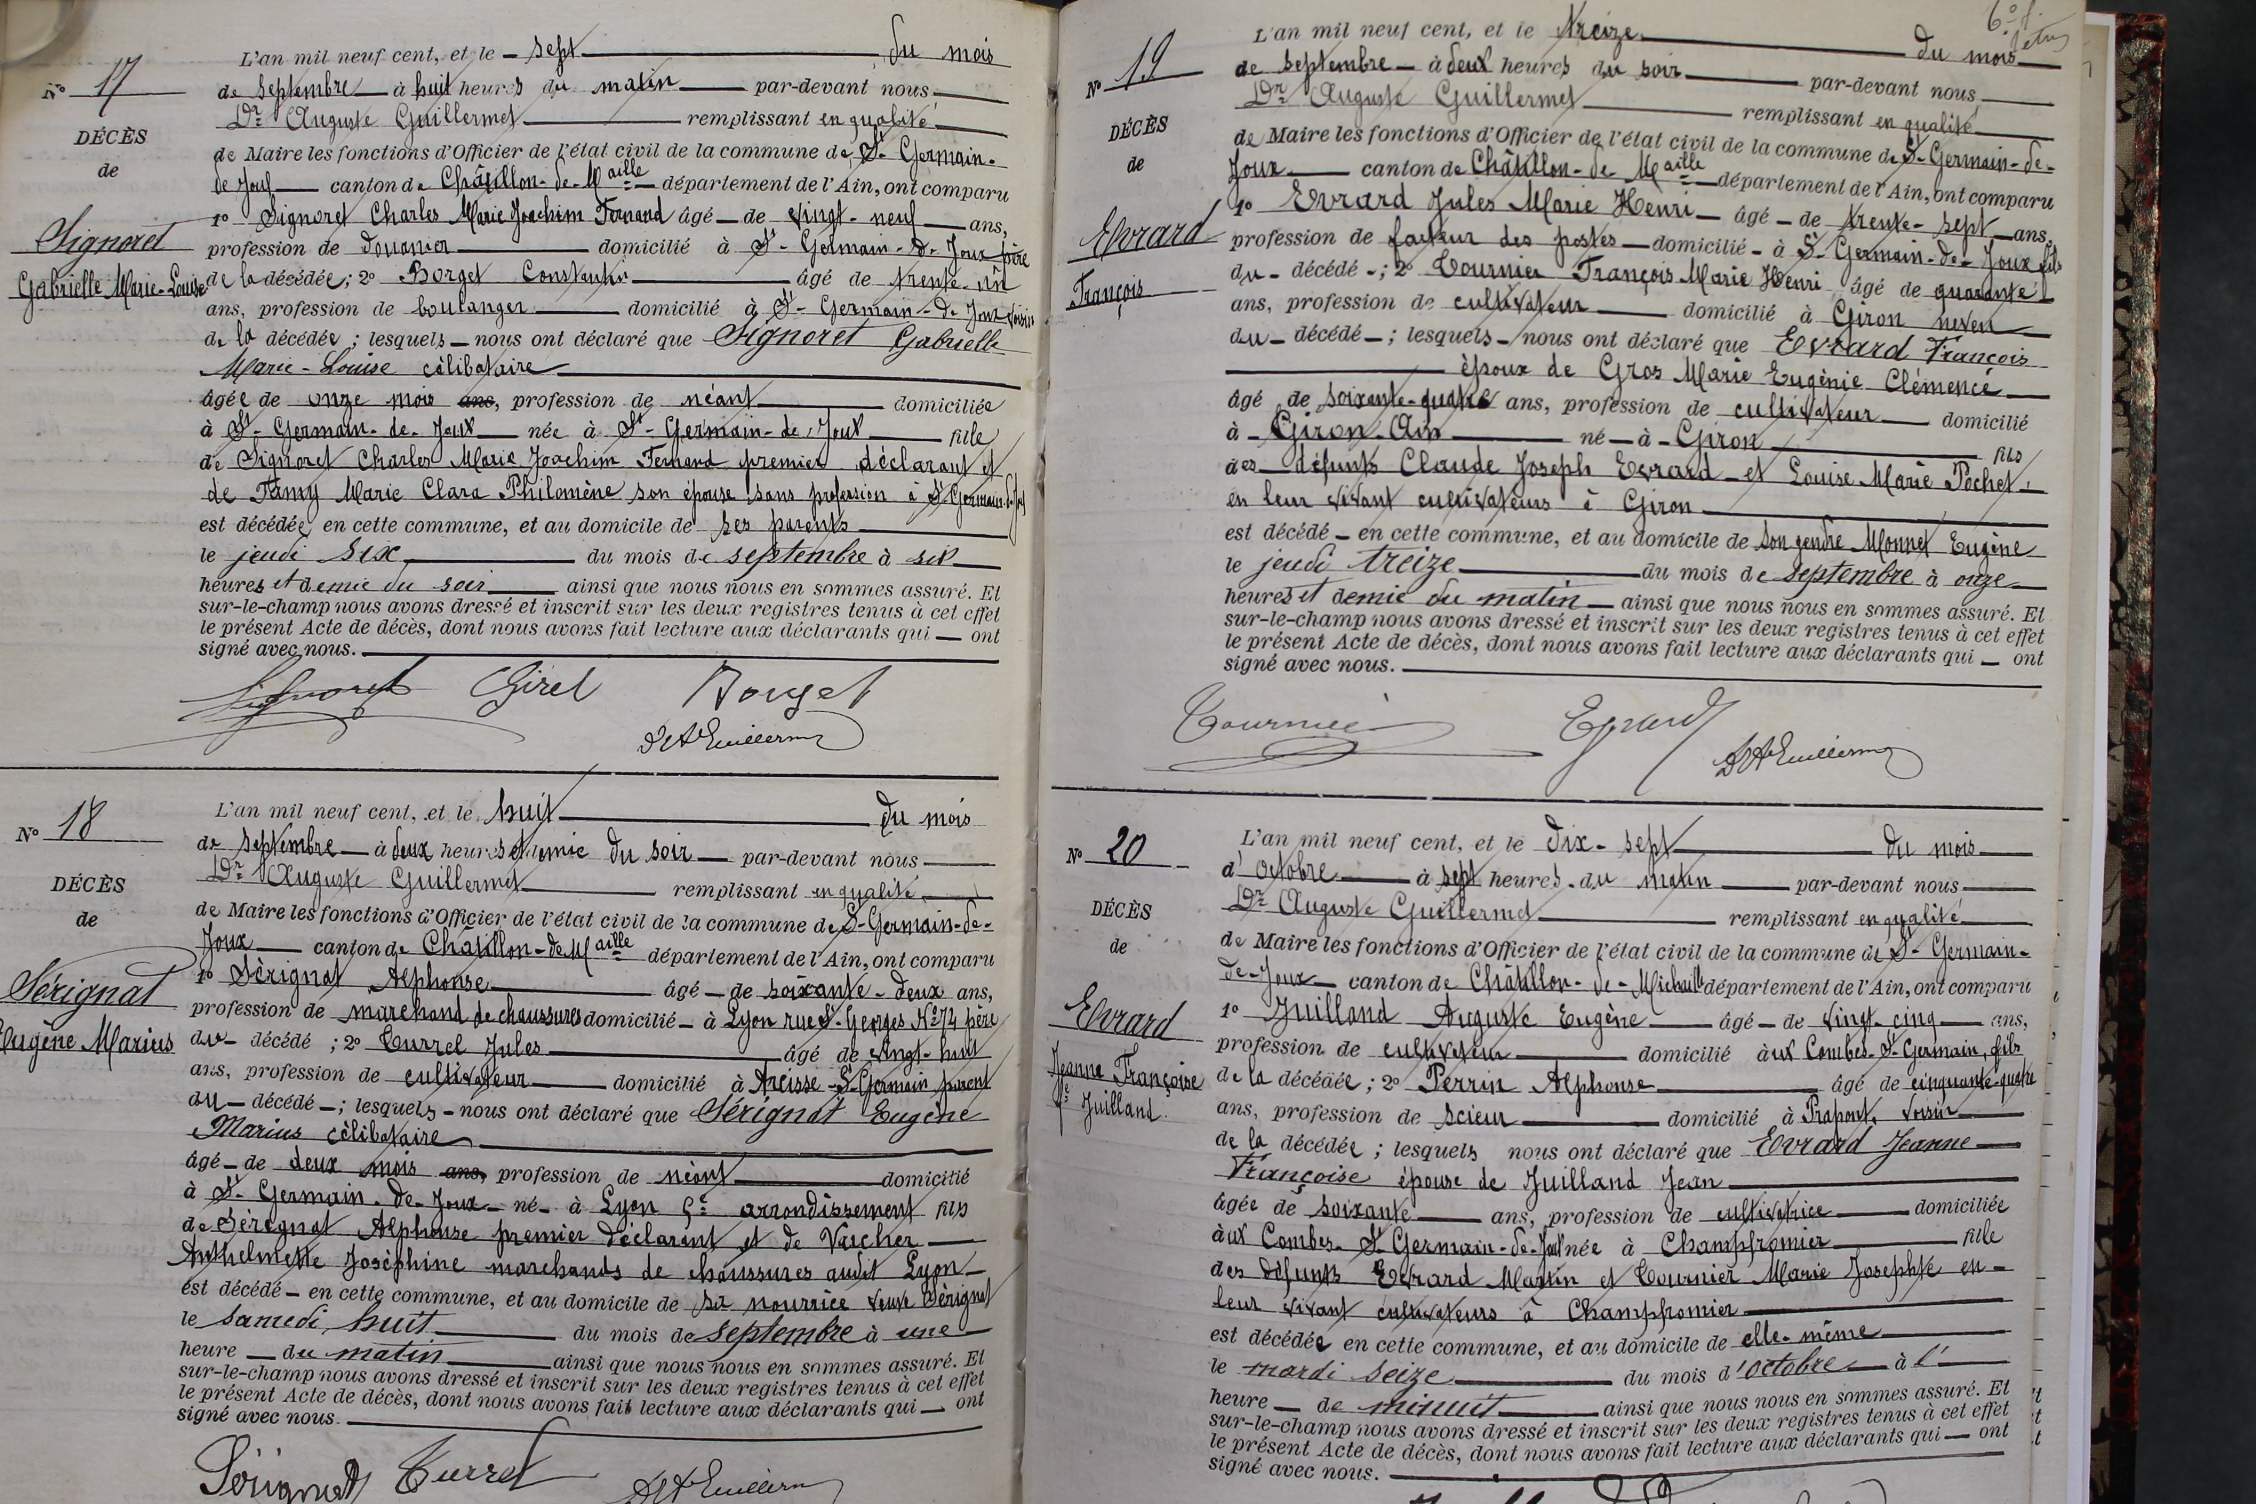 L'an mil neuf cent, et le — sept — du mois
N° 17
de septembre — à huit heures du matin — par-devant nous —
Dr Auguste Guillermet — remplissant en qualité
DÉCÈS
de Maire les fonctions d'Officier de l'état civil de la commune de St- Germain-
de
de Joux — canton de Châtillon-de-Maille — département de l'Ain, ont comparu
1° Signoret Charles Marie Joachim Fernand âgé — de vingt-neuf — ans,
Signoret
profession de douanier — domicilié à St-Germain-de-Joux père
Gabrielle Marie-Louise
de la décédée; 2° Borget Constantin — âgé de trente-un
ans, profession de boulanger — domicilié à St-Germain-de-Joux voisin
de la décédée; lesquels — nous ont déclaré que Signoret Gabrielle
Marie-Louise célibataire —
âgée de onze mois ans, profession de néant — domiciliée
à St-Germain-de-Joux — née à St-Germain-de-Joux — fille
de Signoret Charles Marie Joachim Fernand premier déclarant et
de Famy Marie Clara Philomène son épouse sans profession à St Germain-d-Joux
est décédée en cette commune, et au domicile de ses parents —
le jeudi six — du mois de septembre à six —
heures et demie du soir — ainsi que nous nous en sommes assuré. Et
sur-le-champ nous avons dressé et inscrit sur les deux registres tenus à cet effet
le présent Acte de décès, dont nous avons fait lecture aux déclarants qui — ont
signé avec nous. —
Signoret Girel Borget
Dr Ate Guillermet
L'an mil neuf cent, et le huit — du mois
N° 18
de septembre — à deux heures et demie du soir — par-devant nous —
Dr Auguste Guillermet — remplissant en qualité —
DÉCÈS
de Maire les fonctions d'Officier de l'état civil de la commune de St-Germain-de-
de
Joux — canton de Châtillon-de-Maille département de l'Ain, ont comparu
1° Sérignat Alphonse — âgé — de soixante-deux ans,
Sérignat
profession de marchand de chaussures domicilié — à Lyon rue St-Georges N°74 père
Eugène Marius
du — décédé ; 2° Turrel Jules — âgé de vingt-huit
ans, profession de cultivateur — domicilié à Arcisse-St-Germain parent
du — décédé — ; lesquels — nous ont déclaré que Sérignat Eugène
Marius célibataire —
âgé — de deux mois ans, profession de néant — domicilié
à St-Germain-de-Joux — né — à Lyon 5e arrondissement fils
de Sérignat Alphonse premier déclarant et de Vaucher —
Anthelmette Josèphine marchands de chaussures audit Lyon —
est décédé — en cette commune, et au domicile de sa nourrice veuve Sérignat
le samedi huit — du mois de septembre à une —
heure — du matin — ainsi que nous nous en sommes assuré. Et
sur-le-champ nous avons dressé et inscrit sur les deux registres tenus à cet effet
le présent Acte de décès, dont nous avons fait lecture aux déclarants qui — ont
signé avec nous. —
Sérignat Turrel Dr Ate Guillermet
6e f.
L'an mil neuf cent, et le treize — du mois —
N° 19
de septembre — à deux heures du soir — par-devant nous —
Dr Auguste Guillermet — remplissant en qualité
DÉCÈS
de Maire les fonctions d'Officier de l'état civil de la commune de St-Germain-de-
de
Joux — canton de Châtillon-de Maille — département de l'Ain, ont comparu
1° Evrard Jules Marie Henri — âgé — de trente-sept — ans,
Evrard
profession de facteur des postes — domicilié — à St-Germain-de-Joux fils
François
du — décédé — ; 2° Tournier François Marie Henri âgé de quarante
ans, profession de cultivateur — domicilié à Giron neveu —
du — décédé — ; lesquels — nous ont déclaré que Evrard François
— époux de Gros Marie Eugènie Clémence —
âgé de soixante-quatre ans, profession de cultivateur — domicilié
à — Giron-Ain — né — à — Giron — fils
des défunts Claude Joseph Evrard — et Louise Marie Pochet,
en leur vivant cultivateurs à Giron —
est décédé — en cette commune, et au domicile de son gendre Monnet Eugène
le jeudi treize — du mois de septembre à onze —
heures et demie du matin — ainsi que nous nous en sommes assuré. Et
sur-le-champ nous avons dressé et inscrit sur les deux registres tenus à cet effet
le présent Acte de décès, dont nous avons fait lecture aux déclarants qui — ont
signé avec nous. —
Tournier Evrard
Dr Ate Guillermet
L'an mil neuf cent, et le dix-sept — du mois —
N° 20
d'octobre — à sept heures du matin — par-devant nous —
Dr Auguste Guillermet — remplissant en qualité
DÉCÈS
de Maire les fonctions d'Officier de l'état civil de la commune de St-Germain-
de
de-Joux — canton de Châtillon-de-Michaille département de l'Ain, ont comparu
1° Juilland Auguste Eugène — âgé — de vingt-cinq — ans,
Evrard
profession de cultivateur — domicilié aux Combes-St-Germain, fils
Jeanne Françoise
de la décédée; 2° Perrin Alphonse — âgé de cinquante-quatre
fe Juilland.
ans, profession de scieur — domicilié à Prapont, voisin —
de la décédée ; lesquels nous ont déclaré que Evrard Jeanne —
Françoise épouse de Juilland Jean —
âgée de soixante — ans, profession de cultivatrice — domiciliée
aux Combes-St-Germain-de-Joux née à Champfromier — fille
des défunts Evrard Martin et Tournier Marie Josephte en —
leur vivant cultivateurs à Champfromier —
est décédée en cette commune, et au domicile de elle-même —
le mardi seize — du mois d'octobre — à l' —
heure — de minuit — ainsi que nous nous en sommes assuré. Et
sur-le-champ nous avons dressé et inscrit sur les deux registres tenus à cet effet
le présent Acte de décès, dont nous avons fait lecture aux déclarants qui — ont
signé avec nous. —